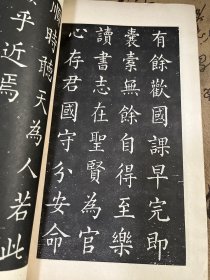 有餘歡國課早完即
囊橐無餘自得至樂
讀書志在聖賢為官
心存君國守分安命
順時聽天為人若此
乎近焉